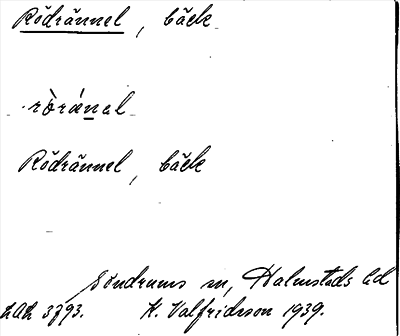 Rödrännel, bäck
rὸ̀ránəl
Rödrännel, bäck
Söndrums sn, Halmstads hd
K. Valfridsson 1939.